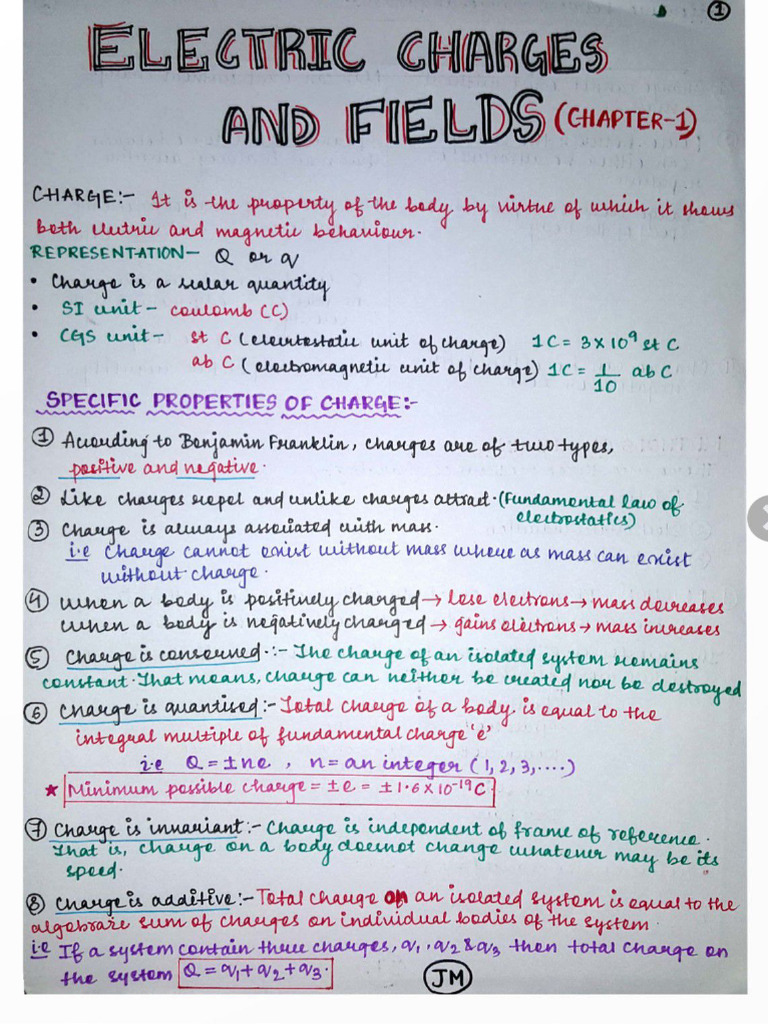 1
ELECTRIC CHARGES
AND FIELDS (CHAPTER-1)
CHARGE:- It is the property of the body by virtue of which it shows
both electric and magnetic behaviour.
REPRESENTATION- Q or q
• Charge is a scalar quantity
• SI unit - coulomb (C)
• CGS unit - st C (electrostatic unit of charge) 1C = 3 x 10⁹ st C
ab C (electromagnetic unit of charge) 1C = 1/10 ab C
SPECIFIC PROPERTIES OF CHARGE:-
① According to Benjamin Franklin, charges are of two types,
positive and negative.
② Like charges repel and unlike charges attract. (Fundamental law of
electrostatics)
③ Charge is always associated with mass.
i.e Charge cannot exist without mass where as mass can exist
without charge.
④ When a body is positively charged → lose electrons → mass decreases
When a body is negatively charged → gains electrons → mass increases
⑤ Charge is conserved.:- The charge of an isolated system remains
constant. That means, charge can neither be created nor be destroyed
⑥ Charge is quantised:- Total charge of a body is equal to the
integral multiple of fundamental charge 'e'
i.e Q = ±ne , n = an integer (1, 2, 3, ....)
★ Minimum possible charge = ±e = ±1.6 x 10⁻¹⁹ C
⑦ Charge is invariant:- Charge is independent of frame of reference.
That is, charge on a body doesnot change whatever may be its
speed.
⑧ Charge is additive:- Total charge on an isolated system is equal to the
algebraic sum of charges on individual bodies of the system.
i.e If a system contain three charges, q₁, q₂ & q₃ then total charge on
the system Q = q₁ + q₂ + q₃.
JM